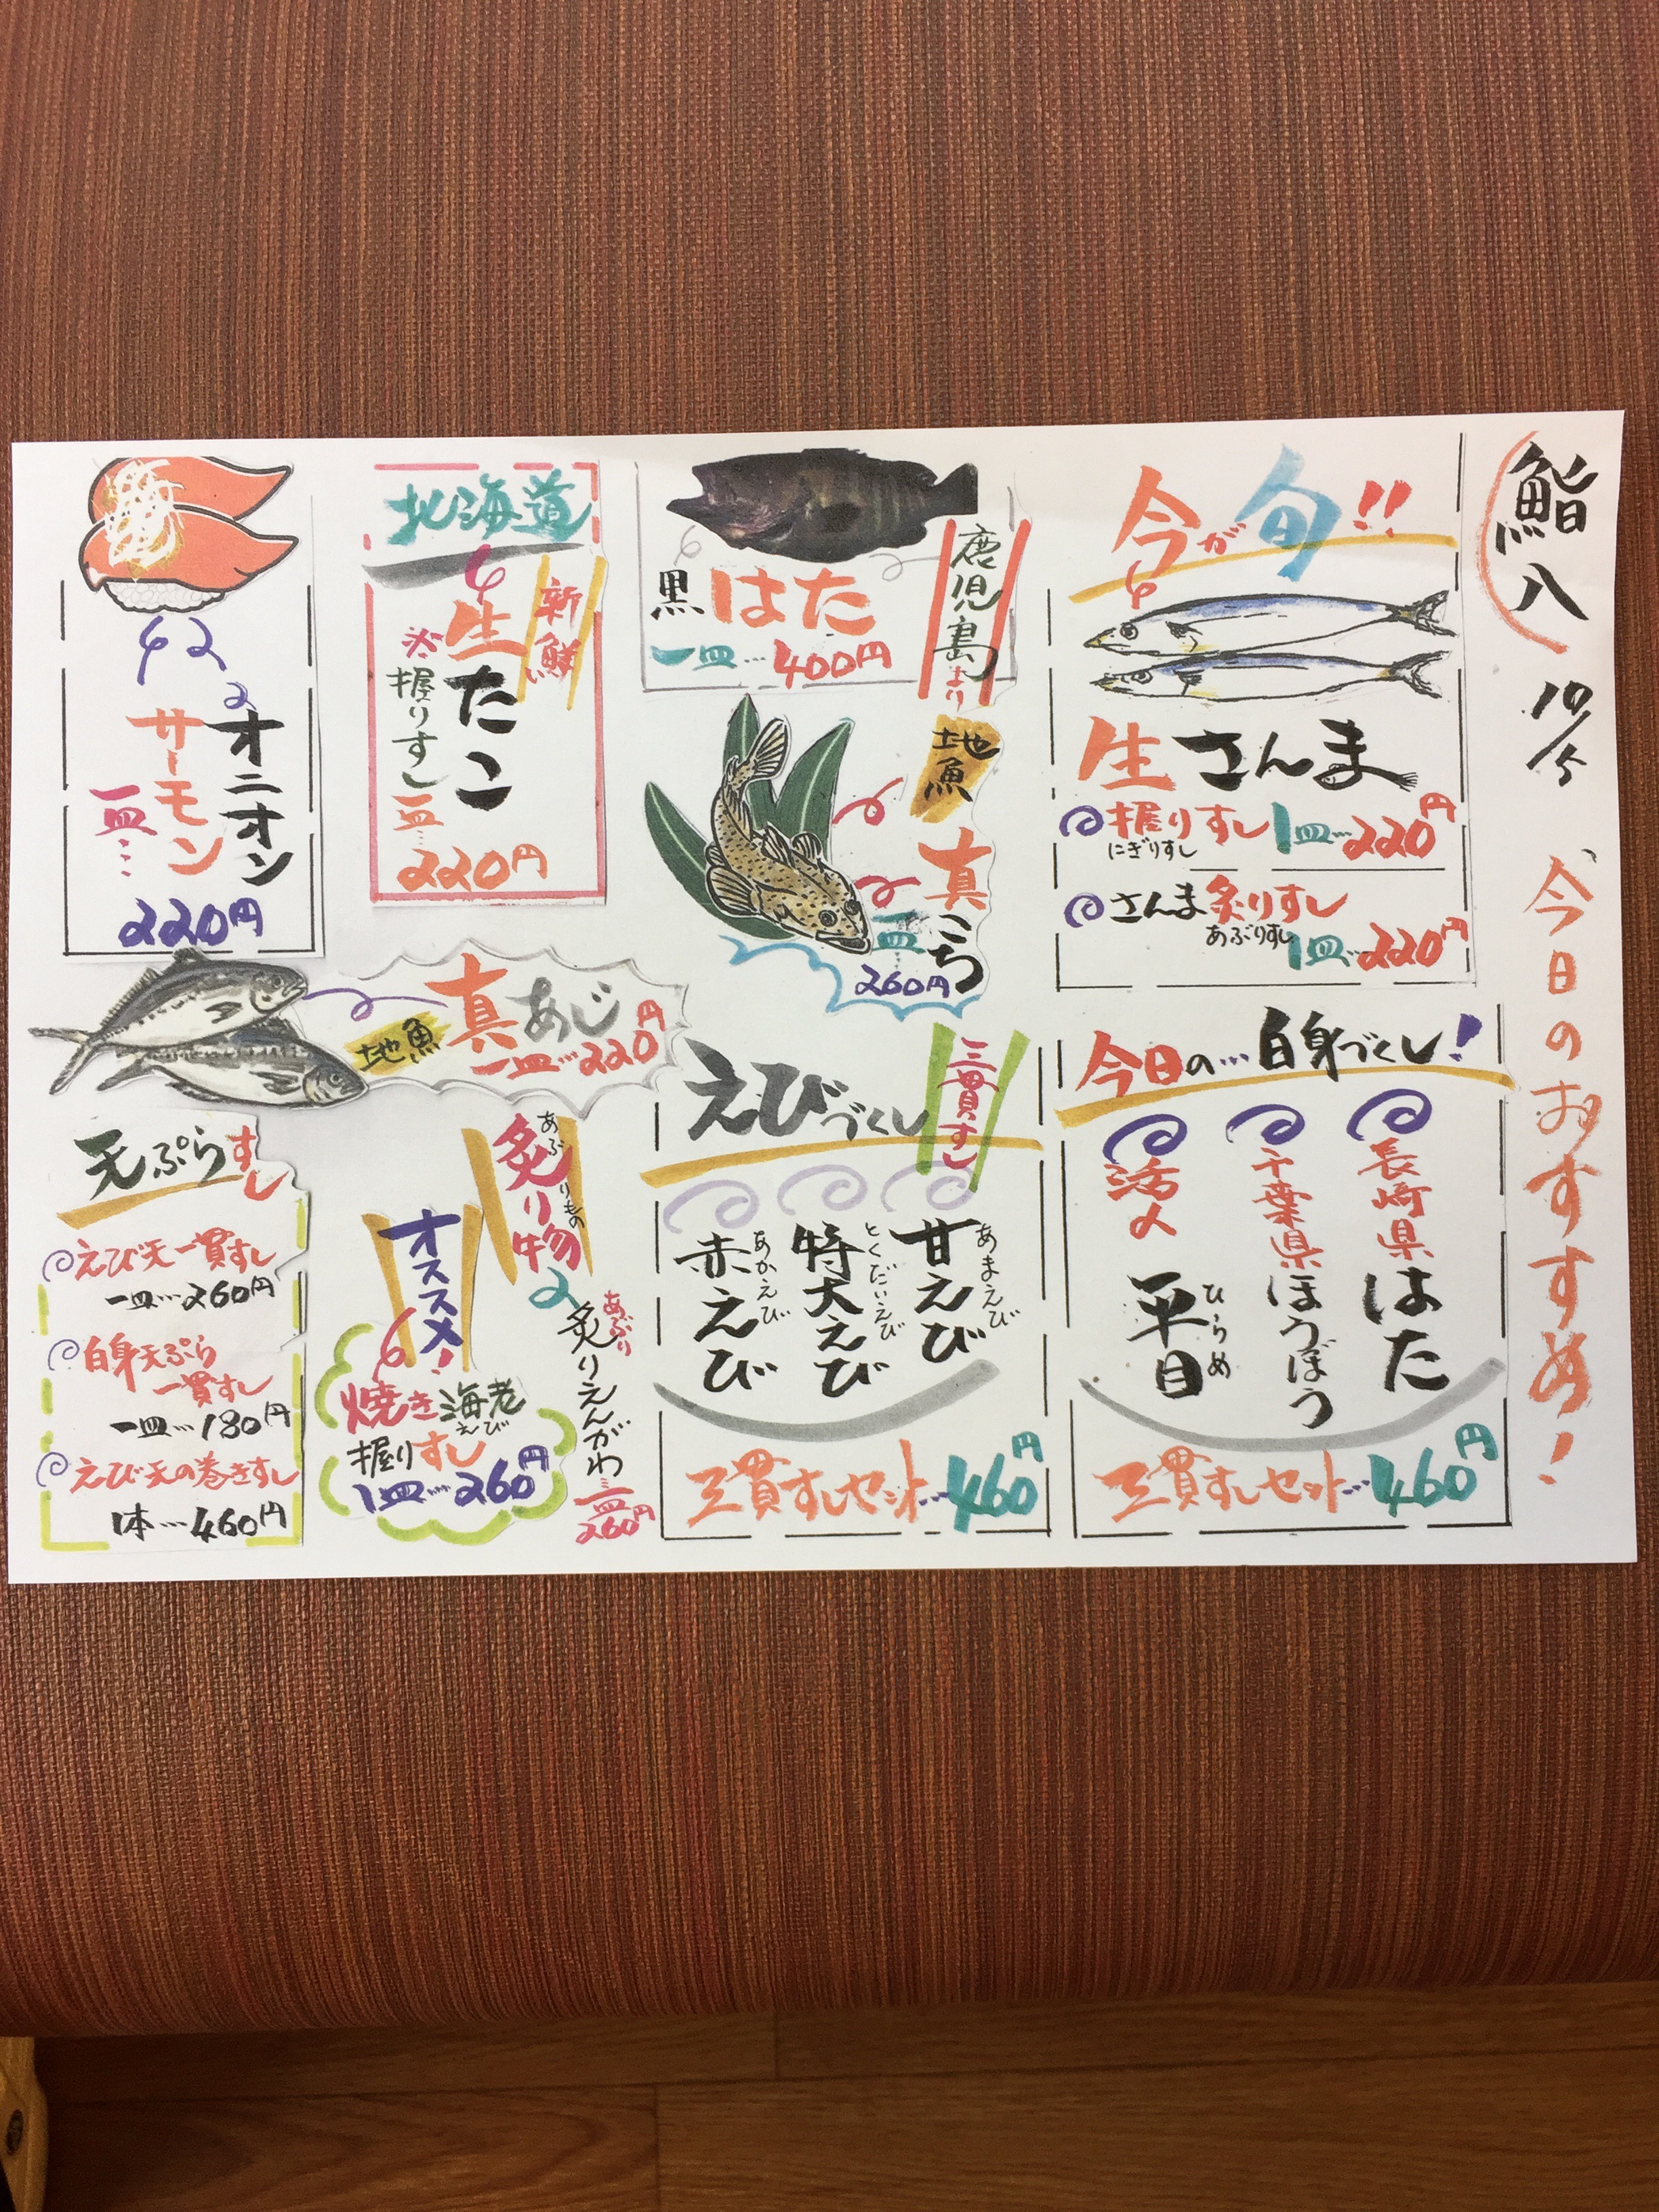 鮨八
10/5
今日のおすすめ!
今が旬!!
生さんま
握りすし 1皿…220円
にぎりすし
さんま炙りすし
あぶりすし
1皿…220円
鹿児島より
黒はた
一皿…400円
地魚
真こち
一皿…
260円
北海道
新鮮
生たこ
握りすし
一皿…
220円
オニオン
サーモン
一皿…
220円
地魚
真あじ
一皿…220円
今日の…白身づくし!
長崎県はた
千葉県ほうぼう
活〆
平目
ひらめ
三貫すしセット…460円
えびづくし
三貫すし
甘えび
あまえび
特大えび
とくだいえび
赤えび
あかえび
三貫すしセット…460円
炙り物
あぶりもの
炙りえんがわ
あぶり
一皿
260円
オススメ!
焼き海老
えび
握りすし
1皿…260円
天ぷらすし
えび天一貫すし
一皿…260円
白身天ぷら
一貫すし
一皿…180円
えび天の巻きすし
1本…460円